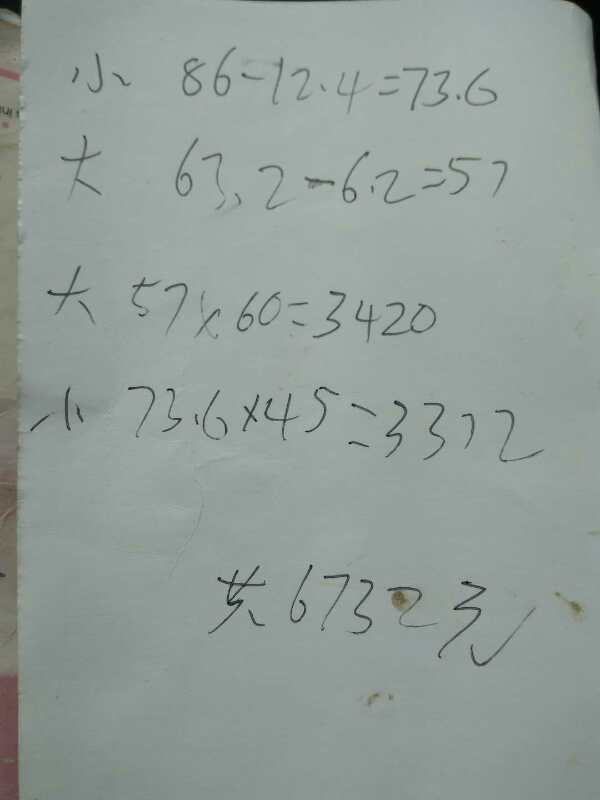 小 86-12.4=73.6
大 63.2-6.2=57
大 57×60=3420
小 73.6×45=3312
共6732元